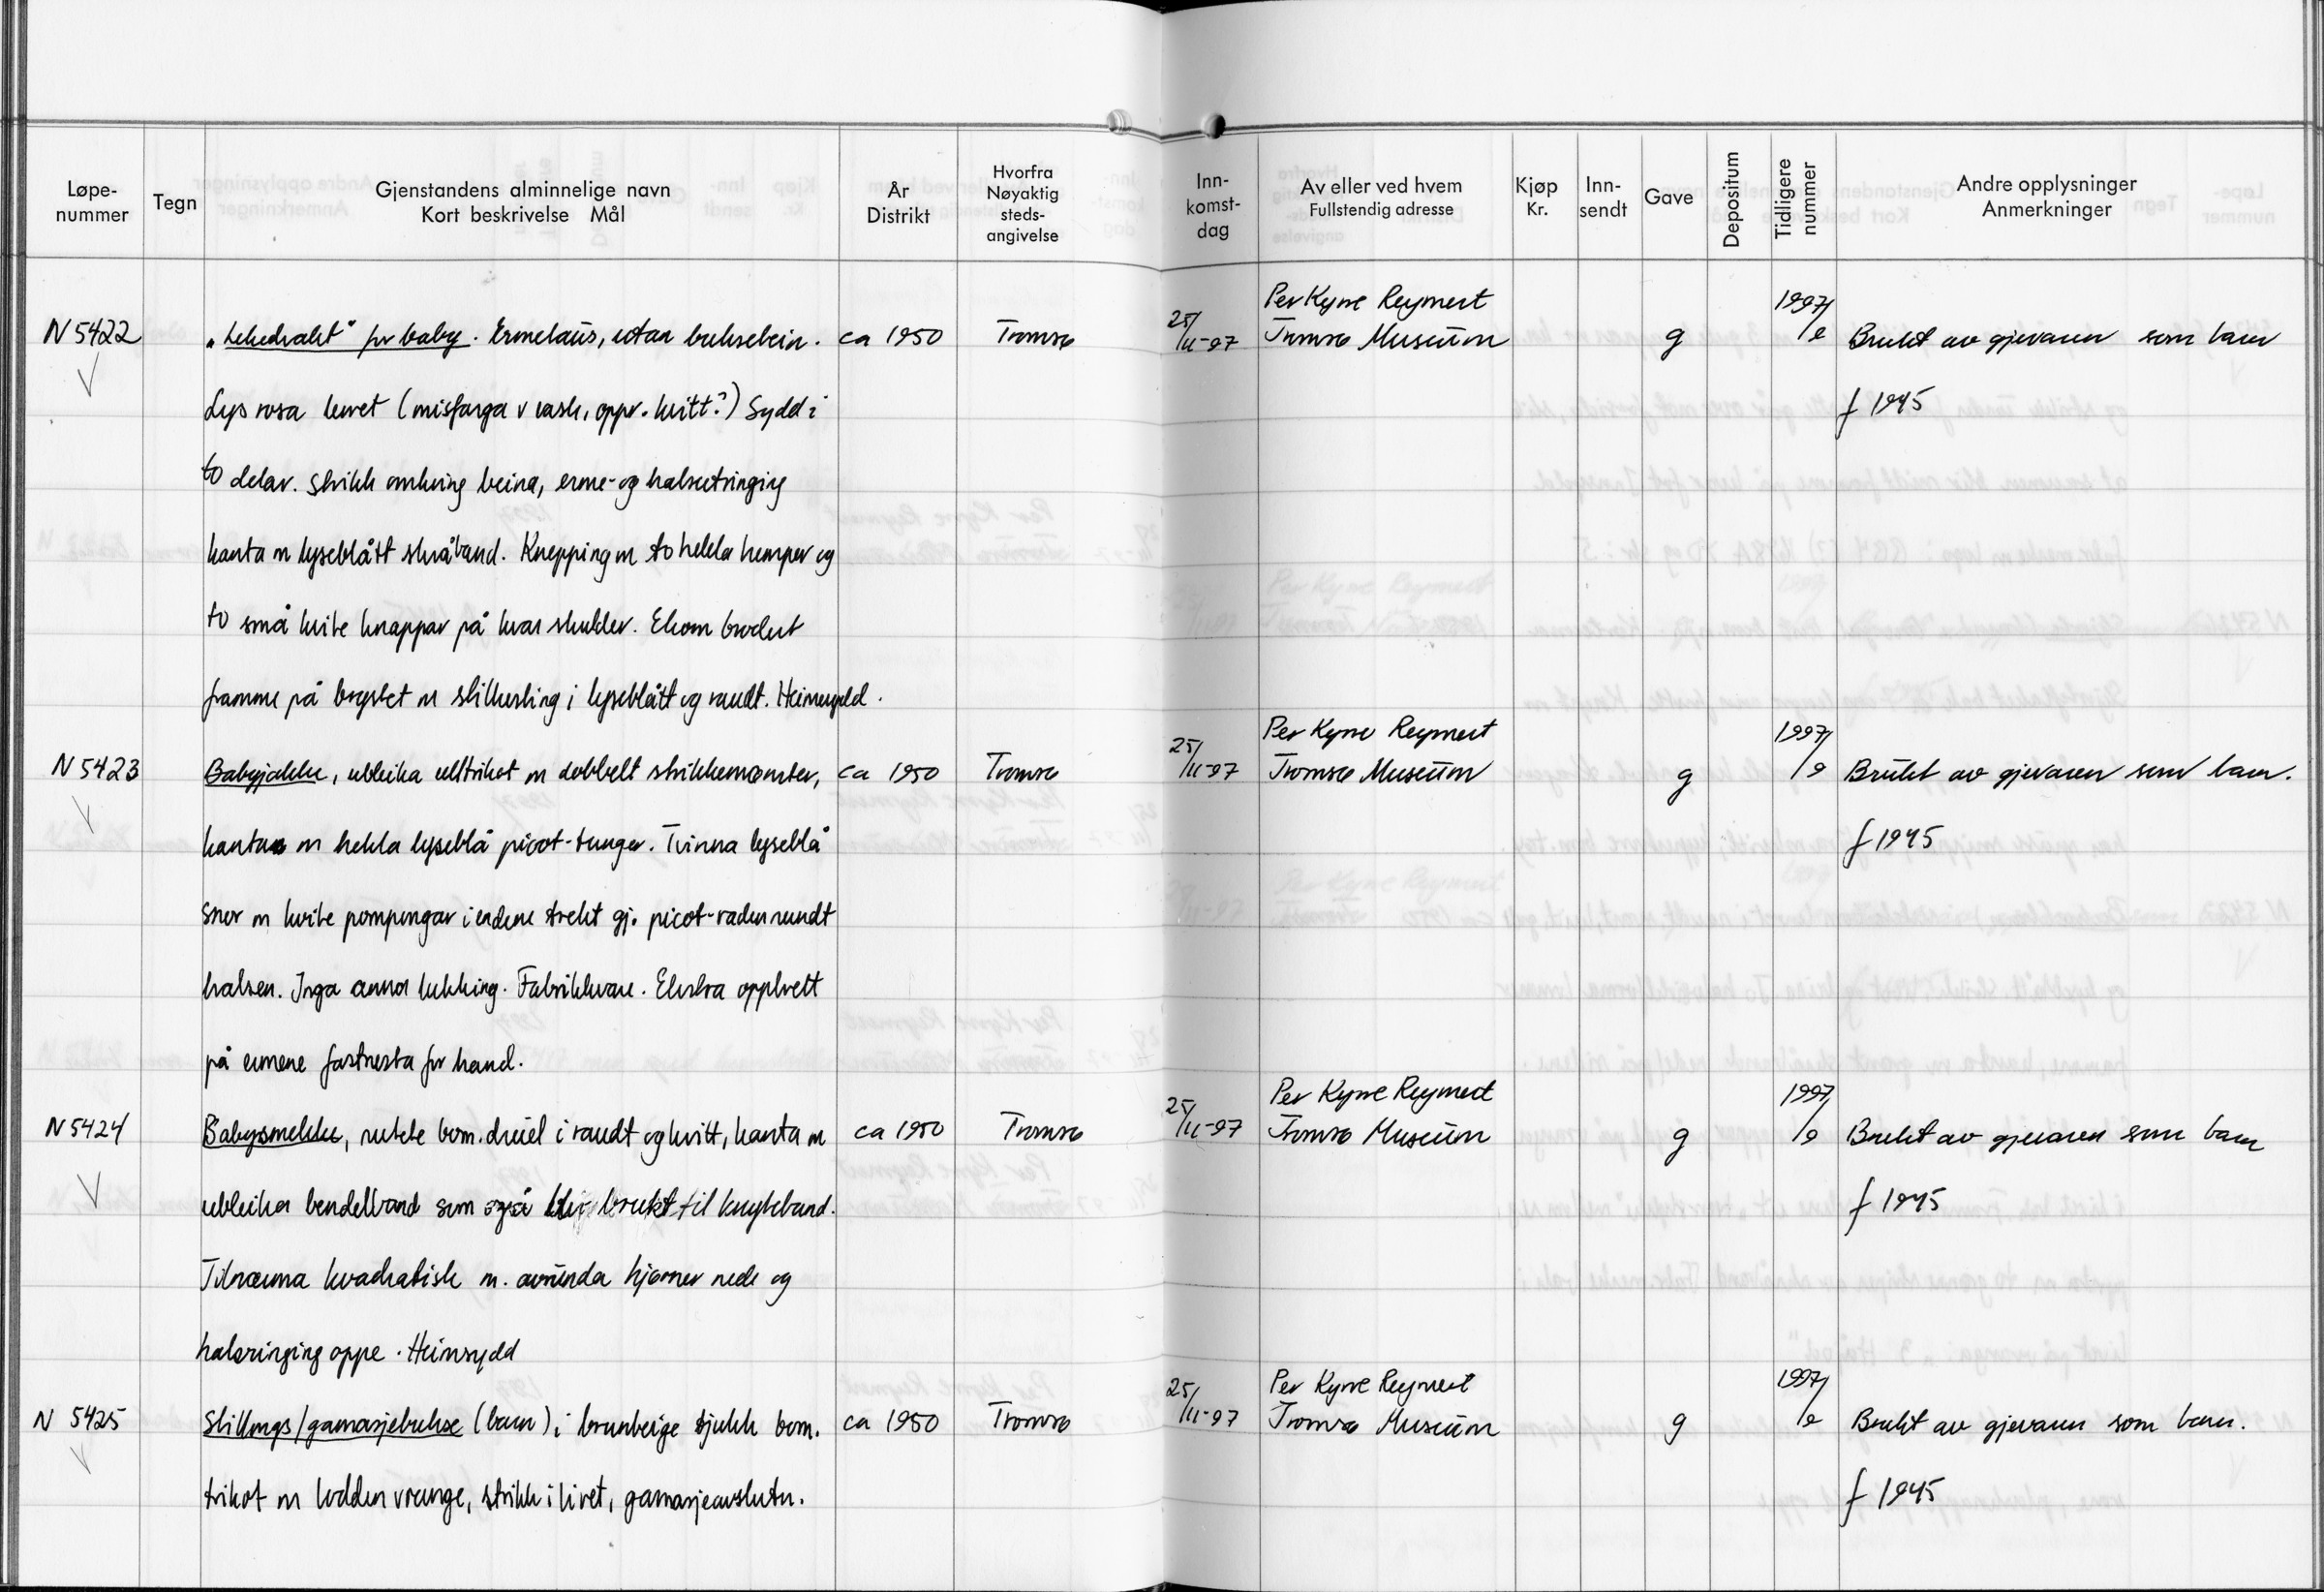 Løpe-nummer Tegn Gjenstandens alminnelige navn Kort beskrivelse Mål År Distrikt Hvorfra Nøyaktig steds-angivelse Inn-komst-dag Av eller ved hvem Fullstendig adresse Kjøp Kr. Inn-sendt Gave Depositum Tidligere nummer Andre opplysninger Anmerkninger
Per Kyrre Reymert 1997/
N 5422 "Lekedrakt" for baby. Ermelaus, utan buksebein. ca 1950 Tromsø 25/11-97 Tromsø Museum g /e Brukt av gjevaren som barn
Lys rosa lerret (misfarga v vask, oppr. kvitt?) Sydd i f 1945
to delar. Strikk omkring beina, erme- og halsutringing
kanta m lyseblått skråband. Knepping m to hekla hemper og
to små kvite knappar på kvar skulder. Ekorn brodert
framme på brystet m stikkesting i lyseblått og raudt. Heimesydd.
Per Kyrre Reymert 1997/
N 5423 Babyjakke, ubleika ulltrikot m dobbelt strikkemønster, ca 1950 Tromsø 25/11-97 Tromsø Museum g /e Brukt av gjevaren som barn.
kanta m hekla lyseblå picot-tunger. Tvinna lyseblå f 1945
snor m kvite pompongar i endene trekt gj. picot-raden rundt
halsen. Inga anna lukking. Fabrikkvare. Ekstra opplrett
på ermene fastnesta for hand.
Per Kyrre Reymert 1997/
N 5424 Babysmekke, rutete bom. dreiel i raudt og kvitt, kanta m ca 1950 Tromsø 25/11-97 Tromsø Museum g /e Brukt av gjevaren som barn
ubleika bendelband som også blir brukt til knyteband. f 1945
Tilnærma kvadratisk m. avrunda hjørner nede og
halsringing oppe. Heimsydd
Per Kyrre Reymert 1997/
N 5425 Stillongs/gamasjebukse (barn) i brunbeige tjukk bom. ca 1950 Tromsø 25/11-97 Tromsø Museum g /e Brukt av gjevaren som barn.
trikot m lodden vrange, strikk i livet, gamasjeavslutn. f 1945